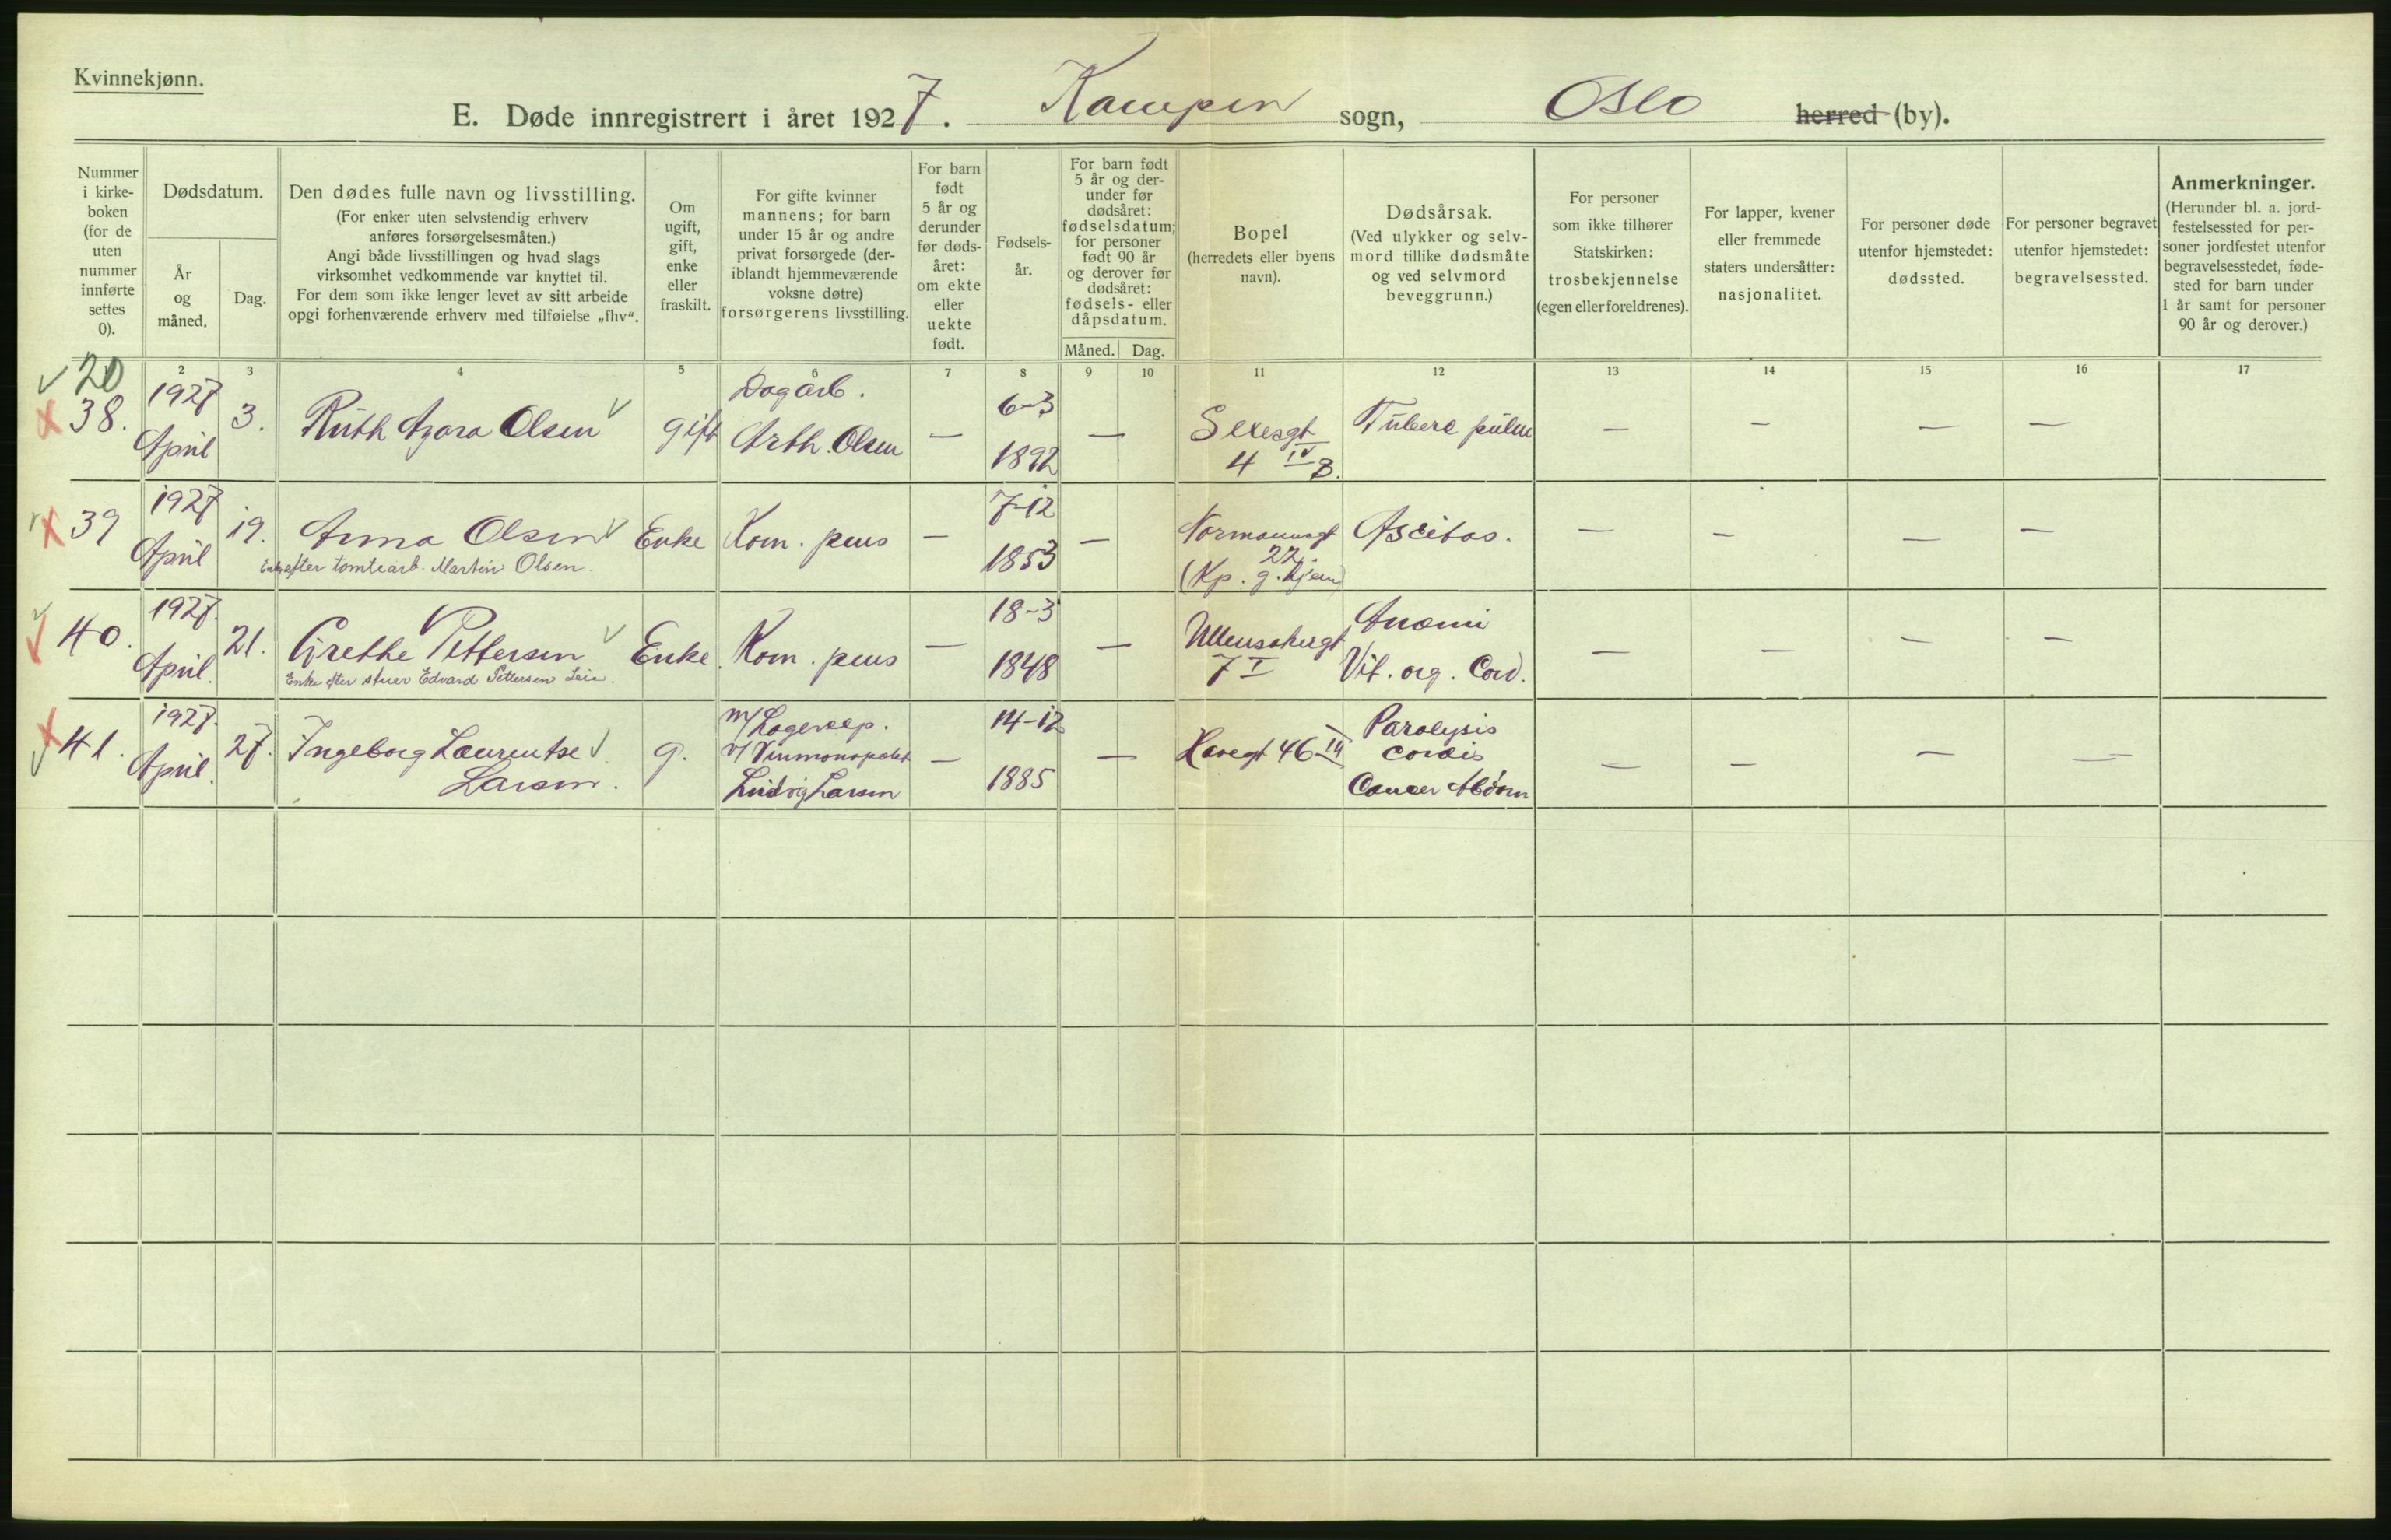 Kvinnekjønn.
E. Døde innregistrert i året 1927. Kampen sogn, Oslo herred (by).
Nummer
i kirke-
boken
(for de
uten
nummer
innførte
settes
0).
Dødsdatum.
År
og
måned.
Dag.
Den dødes fulle navn og livsstilling.
(For enker uten selvstendig erhverv
anføres forsørgelsesmåten.)
Angi både livsstillingen og hvad slags
virksomhet vedkommende var knyttet til.
For dem som ikke lenger levet av sitt arbeide
opgi forhenværende erhverv med tilføielse „fhv“.
Om
ugift,
gift,
enke
eller
fraskilt.
For gifte kvinner
mannens; for barn
under 15 år og andre
privat forsørgede (der-
iblandt hjemmeværende
voksne døtre)
forsørgerens livsstilling.
For barn
født
5 år og
derunder
før døds-
året:
om ekte
eller
uekte
født.
Fødsels-
år.
For barn født
5 år og der-
under før
dødsåret:
fødselsdatum;
for personer
født 90 år
og derover før
dødsåret:
fødsels- eller
dåpsdatum.
Måned. Dag.
Bopel
(herredets eller byens
navn).
Dødsårsak.
(Ved ulykker og selv-
mord tillike dødsmåte
og ved selvmord
beveggrunn.)
For personer
som ikke tilhører
Statskirken:
trosbekjennelse
(egen eller foreldrenes).
For lapper, kvener
eller fremmede
staters undersåtter:
nasjonalitet.
For personer døde
utenfor hjemstedet:
dødssted.
For personer begravet
utenfor hjemstedet:
begravelsessted.
Anmerkninger.
(Herunder bl. a. jord-
festelsessted for per-
soner jordfestet utenfor
begravelsesstedet, føde-
sted for barn under
1 år samt for personer
90 år og derover.)
2 3 4 5 6 7 8 9 10 11 12 13 14 15 16 17
20
38.
1927
April
3.
Ruth Azora Olsen
gift
Dagarb.
Arth. Olsen
—
6-3
1892
—
4 IV B.
Tuberc pulm
— — — —
39
1927
April
19.
Anna Olsen
Enke efter tomtearb. Martin Olsen.
Enke
Kom. pens
—
7-12
1853
—
Normannsgt
22.
(Kp. g. hjem)
Ascitas.
— — — —
40.
1927.
April.
21.
Grethe Pettersen
Enke efter stuer Edvard Pettersen Leie.
Enke
Kom. pens
—
18-3
1848
—
Ullensakergt
7 I
Anæmi
Vit. org. Cord.
— — — —
41.
1927.
April.
27.
Ingeborg Laurentse
Larsen.
g.
m/ Lagereksp.
v/ Vinmonopolet
Ludvig Larsen
—
14-12
1885
—
Havegt 46 III
Paralysis
cordis
Cancer Abdom
— — — —